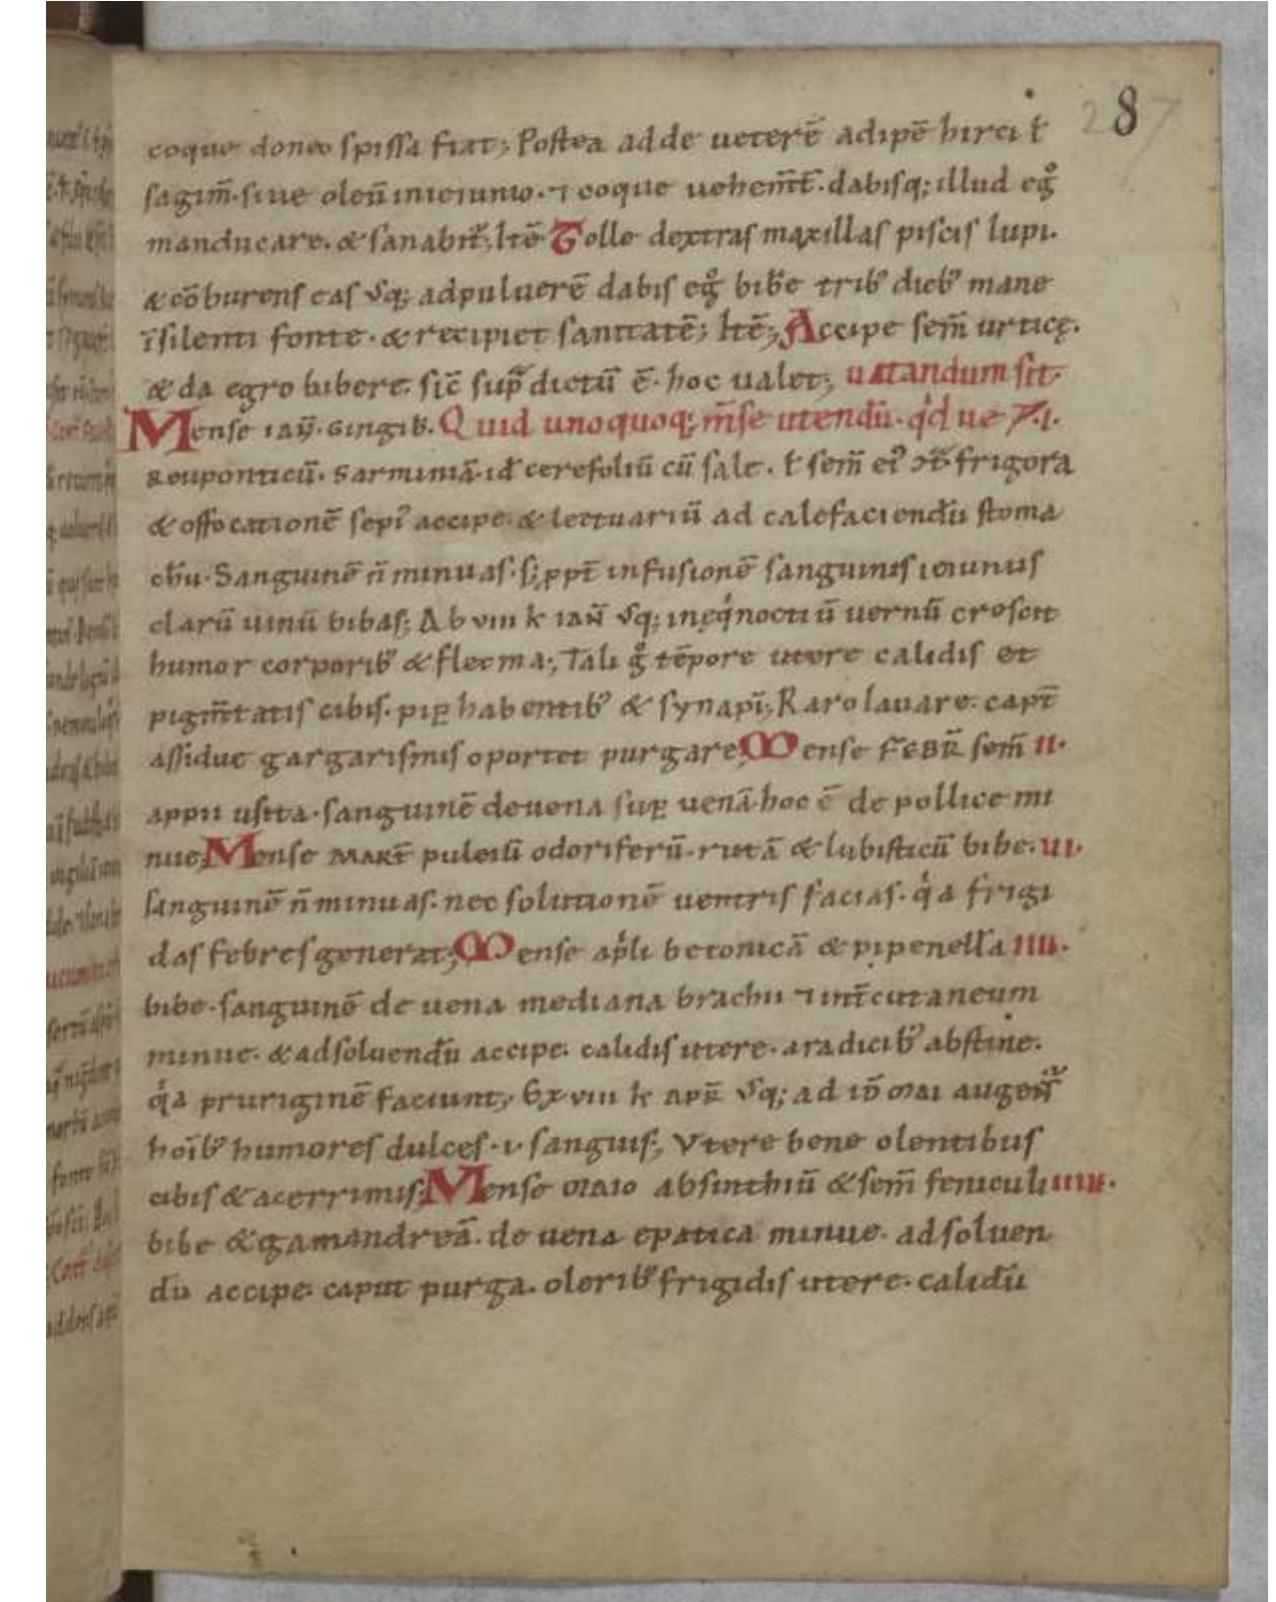 287
coque donec spissa fiat; Postea adde ueterē adipē hirci ł
sagim̄. siue oleū inieiunio. ⁊ coque uehem̄t. dabisq; illud eg̊
manducare. & sanabit᷑; Itē Tolle dextras maxillas piscis lupi.
& cōburens eas usq; adpuluerē dabis eg̊ bibe trib' dieb' mane
ī silenti fonte. & recipiet sanitatē; Itē; Accipe sem̄ urticę.
& da egro bibere. sic̄ sup̄ dictū ē. hoc ualet; uitandum sit.
Mense ian̄. gingib̄. Quid unoquoq; m̄se utendū. qͥd ue
Reuponticū. sarminiā. id cerefoliū cū sale. ł sem̄ ei' frigora
& offocationē sepi' accipe. & lectuariū ad calefaciendū stoma
chū. Sanguinē n̄ minuas. s; ꝓpt̄ infusionē sanguinis ieiunus
clarū uinū bibas; Ab viii k ian̄ usq; ineqͥnoctiū uernū crescit
humor corporib' & flecma; Tali g̊ tēpore utere calidis et
pigm̄tatis cibis. pip̱ habentib' & synapī; Raro lauare. capt̄
assidue gargarismis oportet purgare; Mense FEBR̄ sem̄ II.
appii usita. sanguinē deuena sup̱ uenā. hoc ē de pollice mi
nue; Mense MART̄ puleiū odoriferū. rutā & lubisticū bibe. III.
sanguinē n̄ minuas. nec solutionē uentris facias. qͥa frigi
das febres generat; Mense apͥli betonicā & pipenella IIII.
bibe. sanguinē de uena mediana brachii ⁊ int̄cutaneum
minue. & adsoluendū accipe. calidis utere. aradicib' abstine.
qͥa pruriginē faciunt; Ex viii k APR̄ usq; ad id̄ mai augent᷑
hoīb' humores dulces. i. sanguis; Vtere bene olentibus
cibis & acerrimis; Mense maio absinthiū & sem̄ feniculi
bibe & gamandreā. de uena epatica minue. adsoluen
dū accipe. caput purga. olerib' frigidis utere. calidū